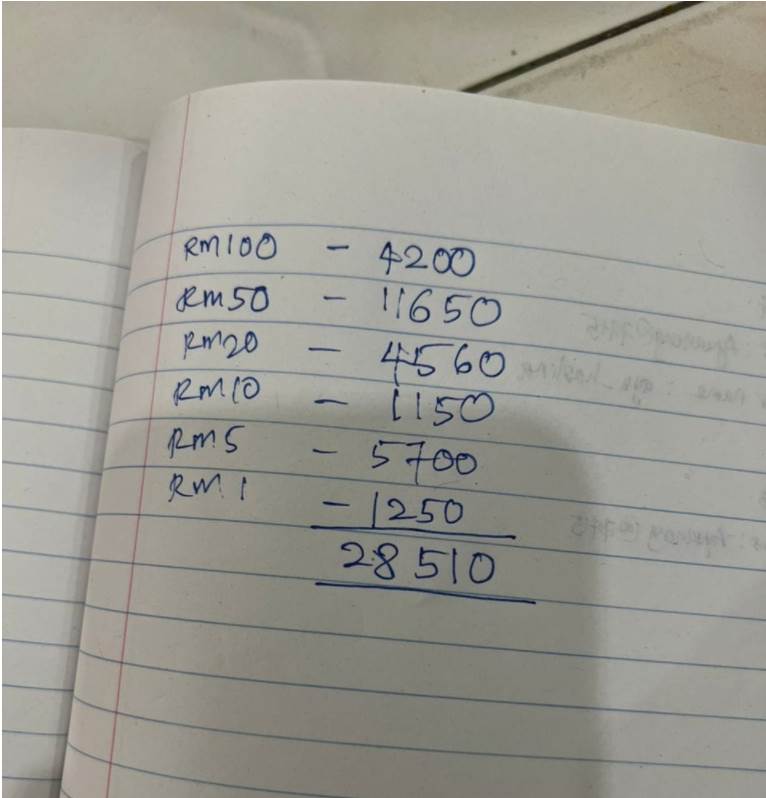 RM100 - 4200
RM50 - 11650
RM20 - 4560
RM10 - 1150
RM5 - 5700
RM1 - 1250
28510